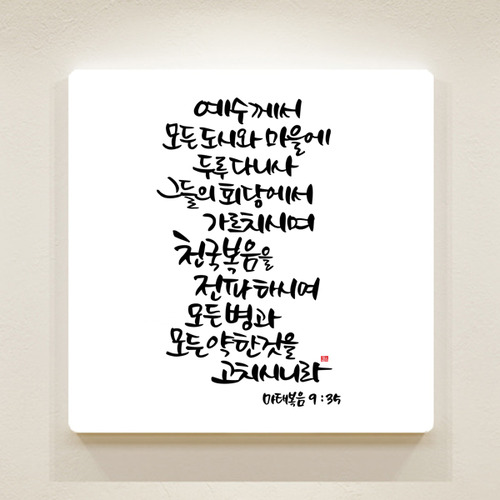 예수께서
모든 도시와 마을에
두루 다니사
그들의 회당에서
가르치시며
천국복음을
전파하시며
모든 병과
모든 약한 것을
고치시니라
마태복음 9:35